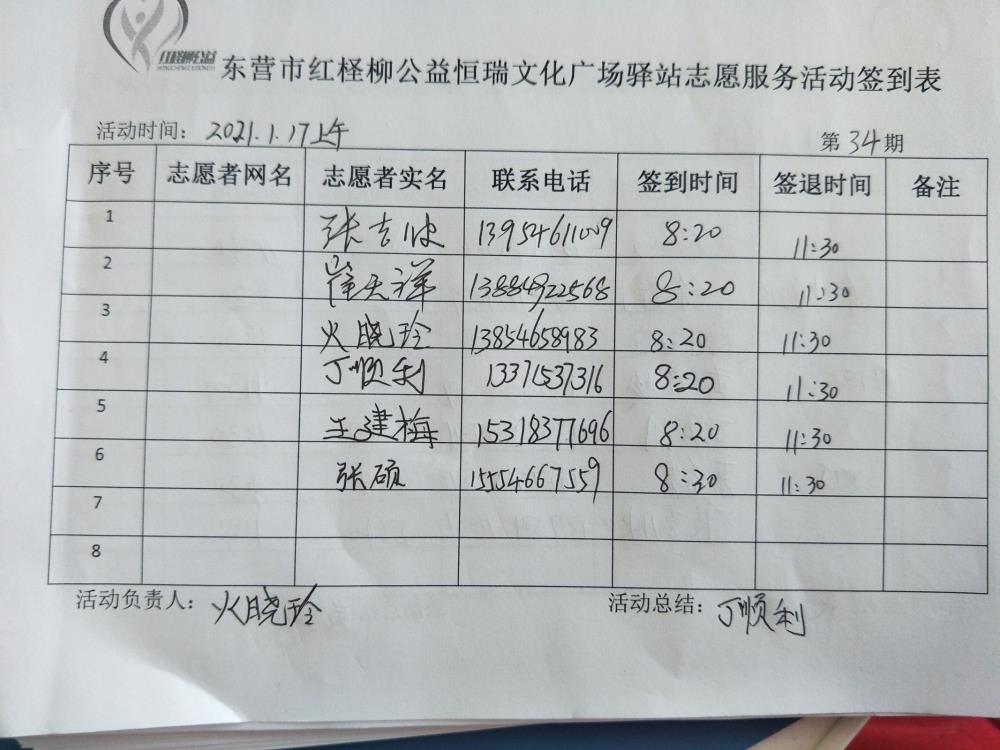 红柽柳公益
东营市红柽柳公益恒瑞文化广场驿站志愿服务活动签到表
活动时间： 2021.1.17上午 第34期
序号 志愿者网名 志愿者实名 联系电话 签到时间 签退时间 备注
1 张吉 13954611009 8:20 11:30
2 崔天祥 13884922568 8:20 11:30
3 火晓玲 13854658983 8:20 11:30
4 丁顺利 13371537316 8:20 11:30
5 王建梅 15318377696 8:20 11:30
6 张硕 15554667559 8:30 11:30
7
8
活动负责人： 火晓玲 活动总结： 丁顺利